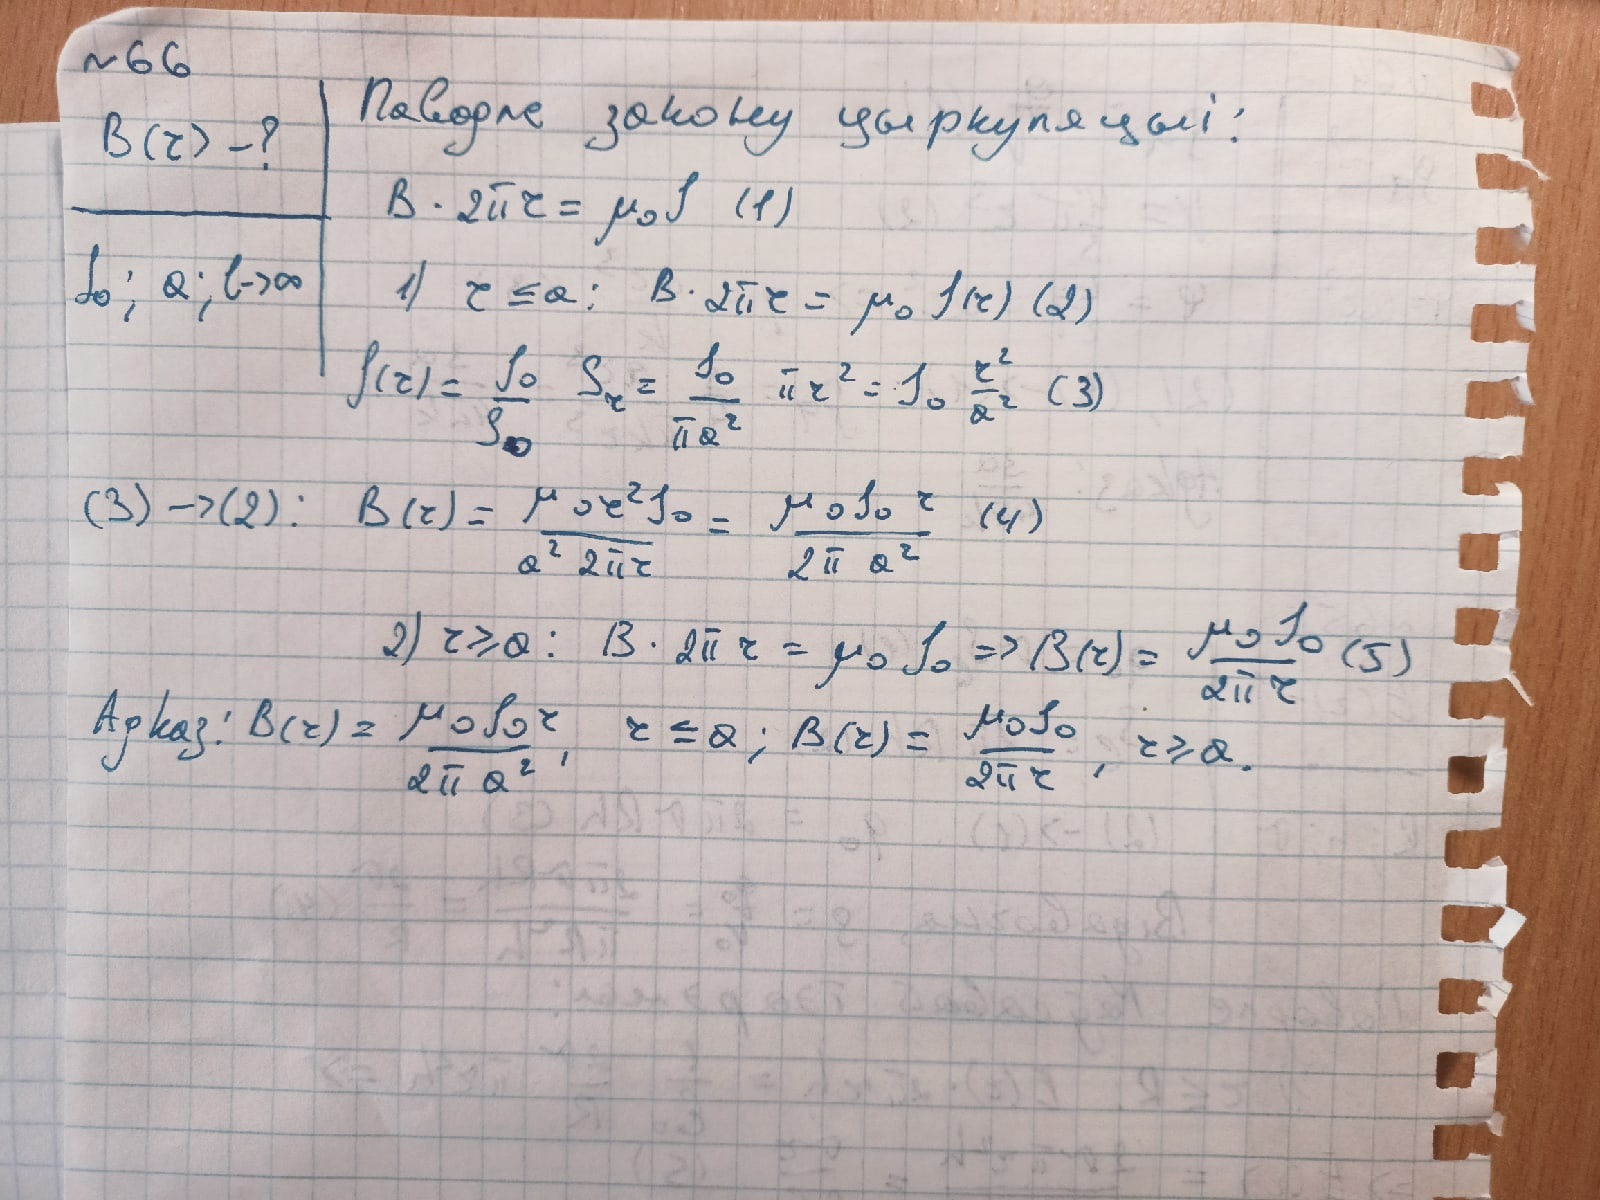 №66
B(r) - ?
I₀; a; l->∞
Паводле закону цыркуляцыі:
B · 2πr = μ₀I (1)
1) r ≤ a: B · 2πr = μ₀ I(r) (2)
I(r) = I₀/S₀ Sᵣ = I₀/πa² πr² = I₀ r²/a² (3)
(3) -> (2): B(r) = μ₀r²I₀/a² 2πr = μ₀I₀ r/2π a² (4)
2) r ≥ a: B · 2π r = μ₀ I₀ => B(r) = μ₀ I₀/2π r (5)
Адказ: B(r) = μ₀I₀r/2π a², r ≤ a; B(r) = μ₀I₀/2π r, r ≥ a.